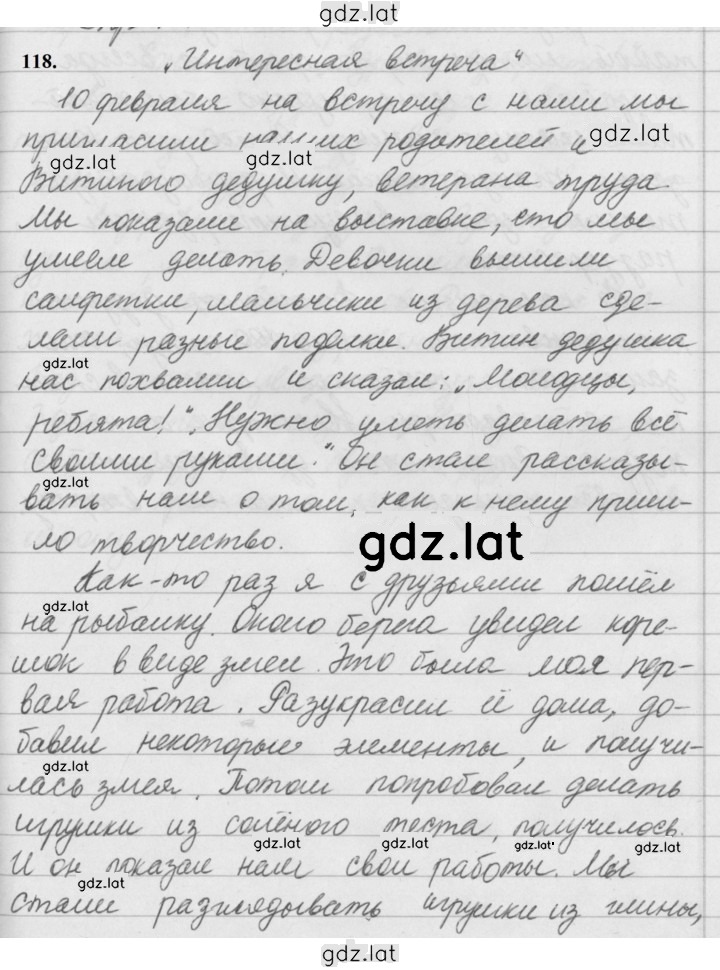 gdz.lat
118. „Интересная встреча“
10 февраля на встречу с нами мы
пригласили наших родителей и
gdz.lat
gdz.lat
gdz.lat
Витиного дедушку, ветерана труда.
Мы показали на выставке, что мы
умеем делать. Девочки вышили
салфетки, мальчики из дерева сде-
лали разные поделки. Витин дедушка
gdz.lat
нас похвалил и сказал: „Молодцы,
ребята!“ „Нужно уметь делать всё
своими руками.“ Он стал рассказы-
вать нам о том, как к нему приш-
ло творчество.
gdz.lat
Как-то раз я с друзьями пошёл
gdz.lat
на рыбалку. Около берега увидел коре-
шок в виде змеи. Это была моя пер-
вая работа. Разукрасил её дома, до-
бавил некоторые элементы, и получи-
лась змея. Потом попробовал делать
игрушки из солёного теста, получилось.
gdz.lat
gdz.lat
gdz.lat
И он показал нам свои работы. Мы
gdz.lat
стали разглядывать игрушки из глины,
gdz.lat